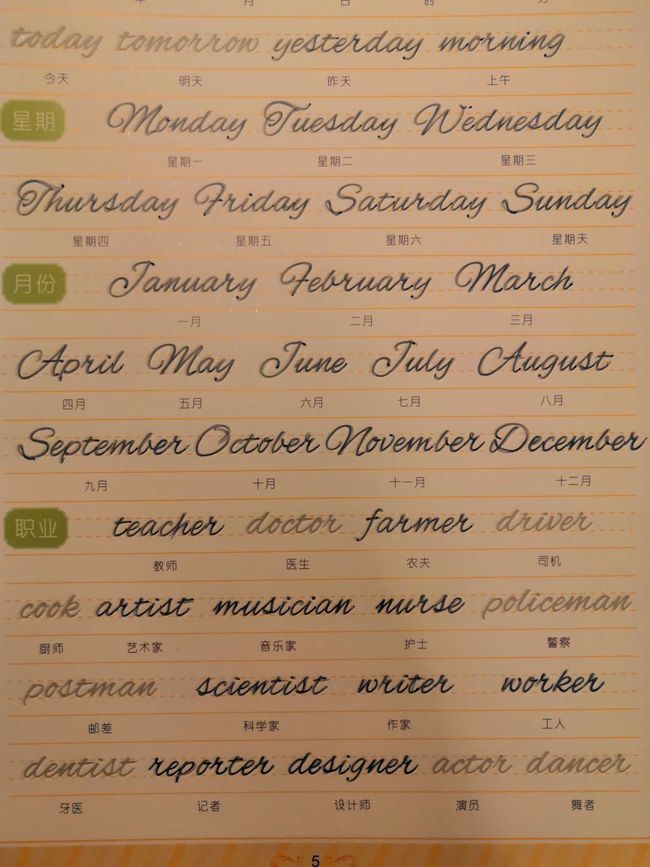 today tomorrow yesterday morning
今天 明天 昨天 上午
星期 Monday Tuesday Wednesday
星期一 星期二 星期三
Thursday Friday Saturday Sunday
星期四 星期五 星期六 星期天
月份 January February March
一月 二月 三月
April May June July August
四月 五月 六月 七月 八月
September October November December
九月 十月 十一月 十二月
职业 teacher doctor farmer driver
教师 医生 农夫 司机
cook artist musician nurse policeman
厨师 艺术家 音乐家 护士 警察
postman scientist writer worker
邮差 科学家 作家 工人
dentist reporter designer actor dancer
牙医 记者 设计师 演员 舞者
5